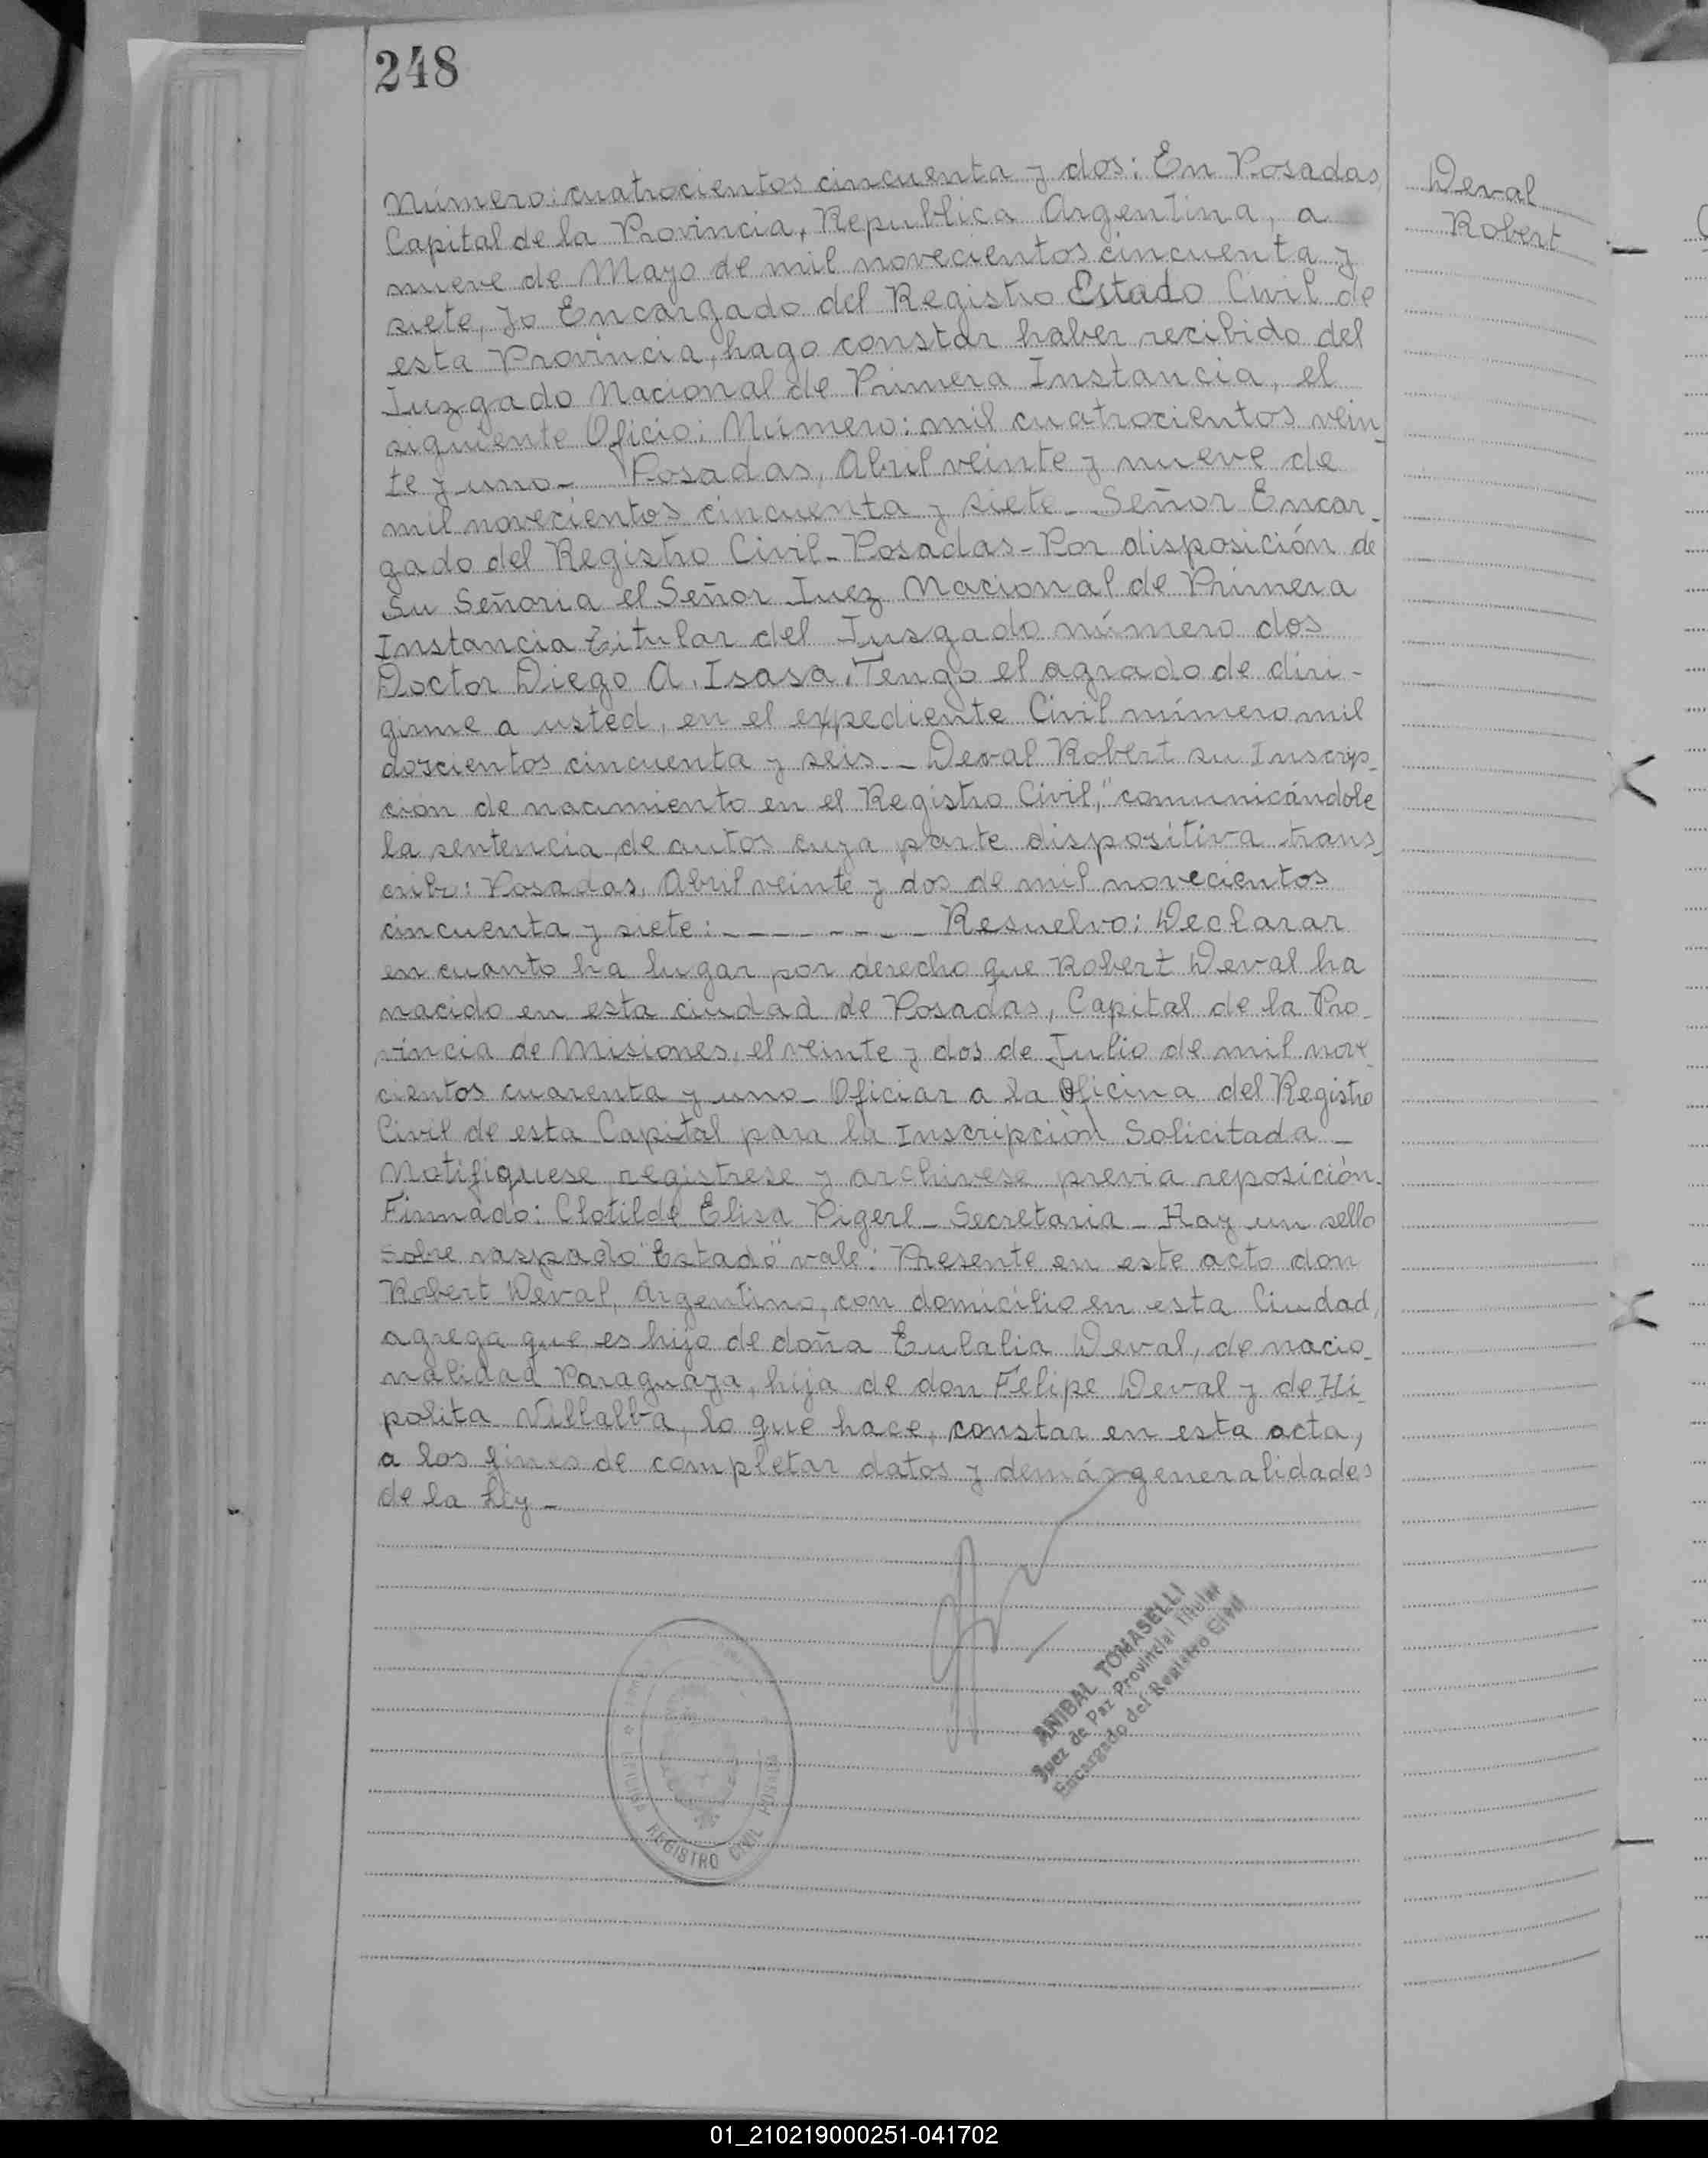 248
Número: cuatrocientos cincuenta y dos: En Posadas,
Capital de la Provincia, Republica Argentina, a
nueve de Mayo de mil novecientos cincuenta y
siete, yo Encargado del Registro Estado Civil de
esta Provincia, hago constar haber recibido del
Juzgado Nacional de Primera Instancia, el
siguiente Oficio: Número: mil cuatrocientos vein_
te y uno_ Posadas, Abril veinte y nueve de
mil novecientos cincuenta y siete_ Señor Encar_
gado del Registro Civil_Posadas-Por disposición de
Su Señoria el Señor Juez Nacional de Primera
Instancia Titular del Jusgado número dos
Doctor Diego A. Isasa, Tengo el agrado de diri-
girme a usted, en el expediente Civil número mil
doscientos cincuenta y seis_ _ Deval Robert su Inscrip_
ción de nacimiento en el Registro Civil," comunicándole
la sentencia de autos cuya parte dispositiva trans_
cribo: Posadas, Abril veinte y dos de mil novecientos
cincuenta y siete: _ _ _ _ _ _ _ _ Resuelvo: Declarar
en cuanto ha lugar por derecho que Robert Deval ha
nacido en esta ciudad de Posadas, Capital de la Pro_
vincia de Misiones, el veinte y dos de Julio de mil nove_
cientos cuarenta y uno_ Oficiar a la Oficina del Registro
Civil de esta Capital para la Inscripción Solicitada _
Notifiquese registrese y archivese previa reposición.
Firmado: Clotilde Elisa Pigerl_ Secretaria_ Hay un sello
sobre raspado "Estado" vale: Presente en este acto don
Robert Deval, Argentino, con domicilio en esta Ciudad,
agrega que es hijo de doña Eulalia Deval, de nacio_
nalidad Paraguaya, hija de don Felipe Deval y de Hi_
polita Villalba, lo que hace, constar en esta acta,
a los fines de completar datos y demás generalidades
de la Ley_
Deval
Robert
ANIBAL TOMASELLI
Juez de Paz Provincial Titular
Encargado del Registro Civil
REGISTRO CIVIL
01_210219000251-041702